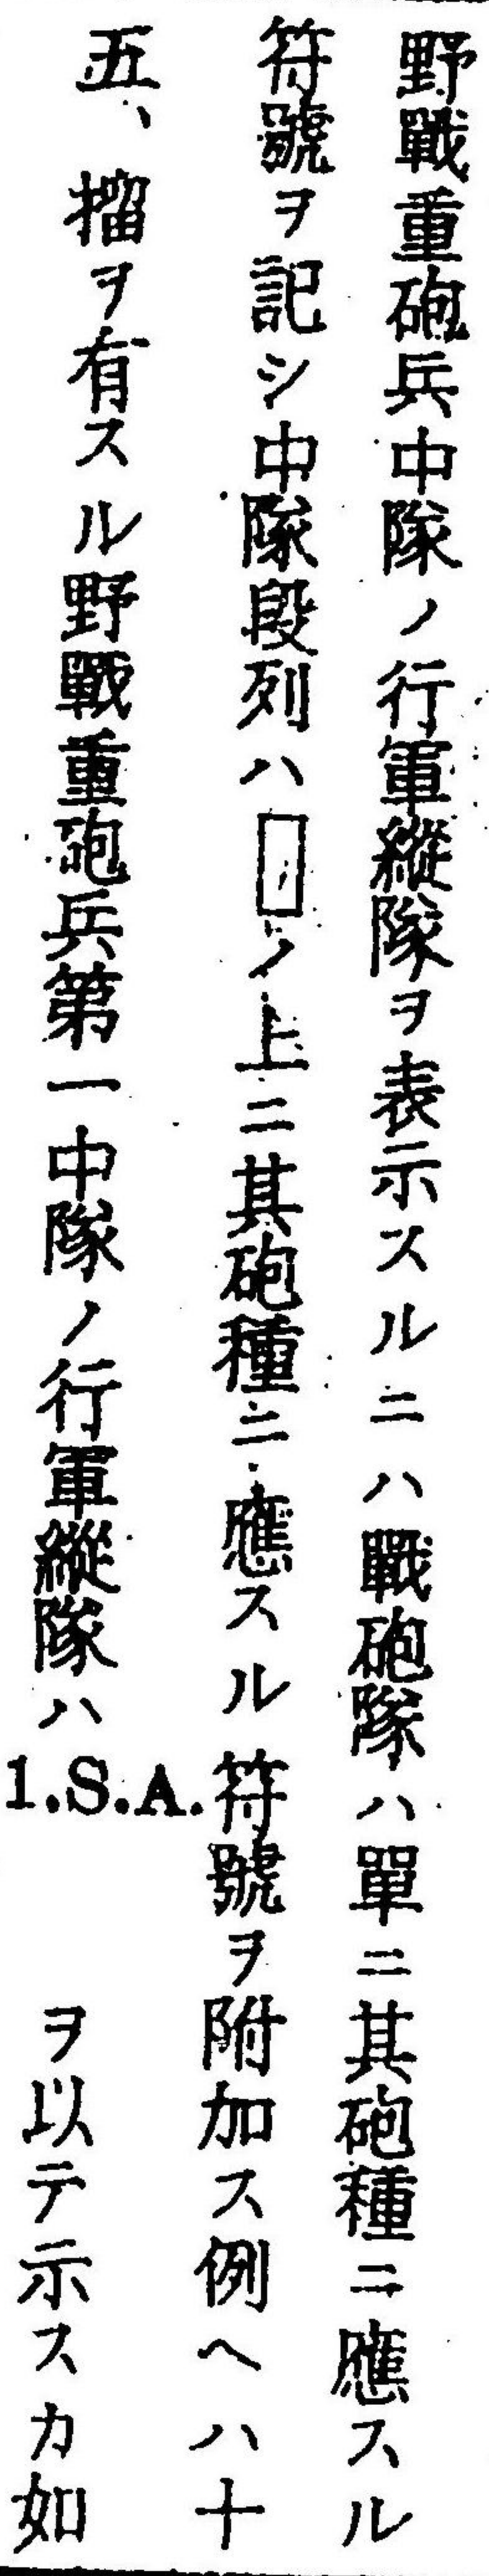 野戰重砲兵中隊ノ行軍縱隊ヲ表示スルニハ戰砲隊ハ單ニ其砲種ニ應スル
符號ヲ記シ中隊段列ハ▯ノ上ニ其砲種ニ應スル符號ヲ附加ス例ヘハ十
五、榴ヲ有スル野戰重砲兵第一中隊ノ行軍縱隊ハ1.S.A.ヲ以テ示スカ如